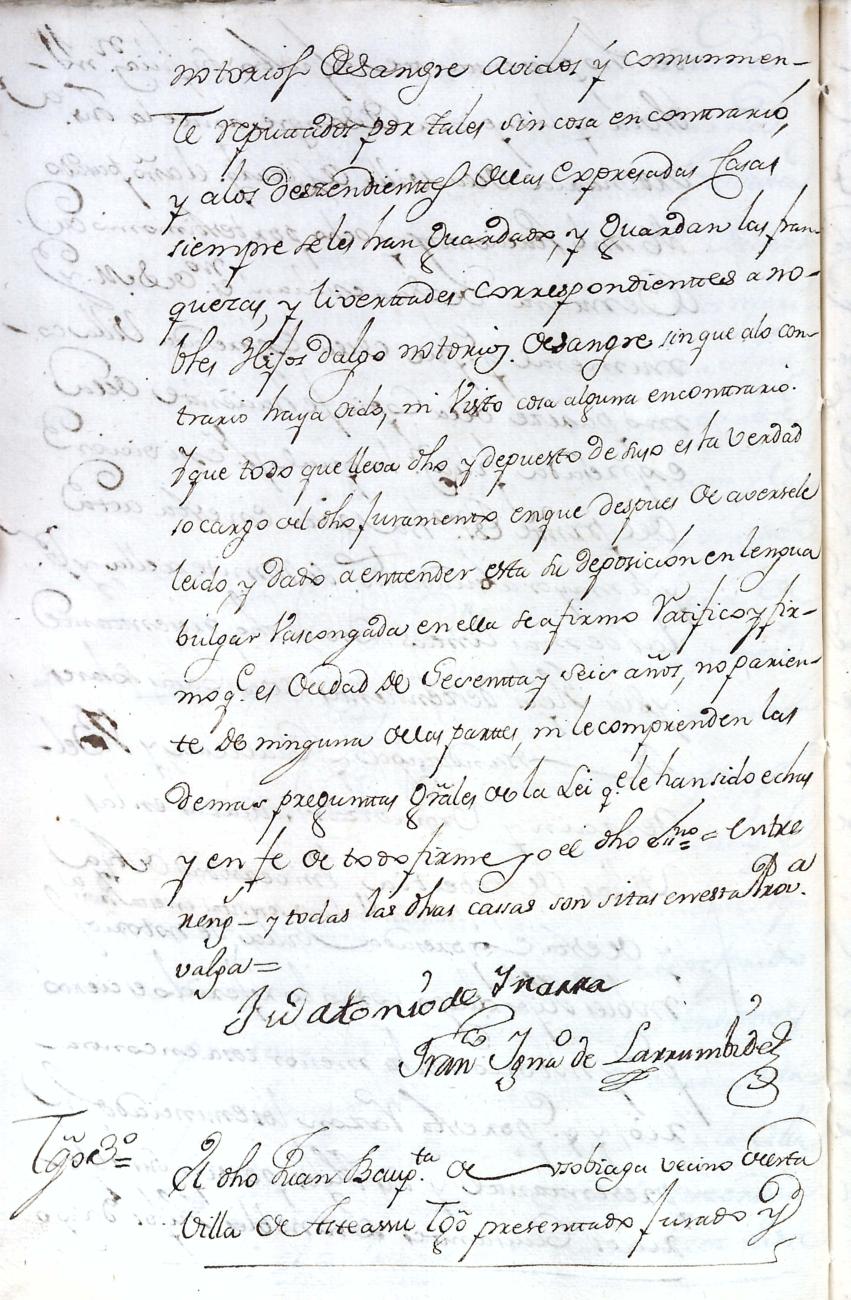 notorios de sangre avidos y comunmen-
te reputtados por tales sin cosa en conttrario,
y a los deszendienttes de las expresadas Casas
siempre se les han guardado, y guardan las fran-
quezas, y liverttades correspondienttes a no-
bles Hijos dalgo notorios de sangre sin que a lo con-
trario haya oido, ni Visto cosa alguna en conttrario.
Y que todo que lleva dho y depuesto de suso es la verdad
so cargo del dho Juramentto en que despues de aversele
leido y dado a enttender esta su deposición en lengua
bulgar Vascongada en ella se afirmo Ratifico y fir-
mo q.e es de edad de Sesentta y seis años, no parien-
te de ninguna de las parttes, ni le comprenden las
demas preguntas grâles de la Lei q.e le han sido echas
y en fe de todo firme yo el dho Ss.no = entre
reng.s - y todas las dhas cassas son sitas en esta Prov.a
valga =
Ju.o Antonio de Ynarra
Fran.co Ygna.o de Larrumbide
Tgo 3.o =
El dho Juan Baup.ta de Usobiaga vecino de esta
Villa de Asteasu Tgo presenttado Jurado y